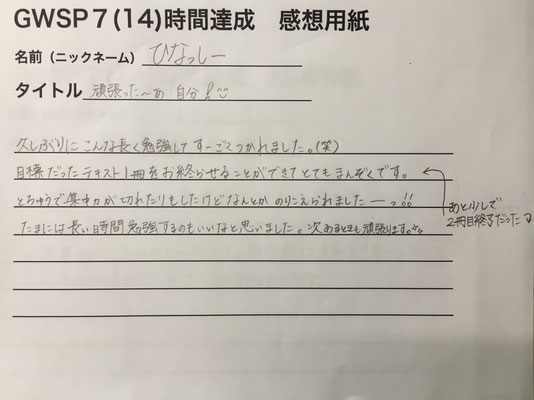 GWSP7(14)時間達成 感想用紙
名前(ニックネーム) ひなっしー
タイトル 頑張った〜ぁ 自分!
久しぶりにこんな長く勉強してすーごくつかれました。(笑)
目標だったテキスト1冊をお終らせることができてとてもまんぞくです。
とちゅうで集中力が切れたりもしたけどなんとかのりこえられましたーっ!!
あと少しで
2冊目終了だった
たまには長い時間勉強するのもいいなと思いました。次あるときも頑張ります。